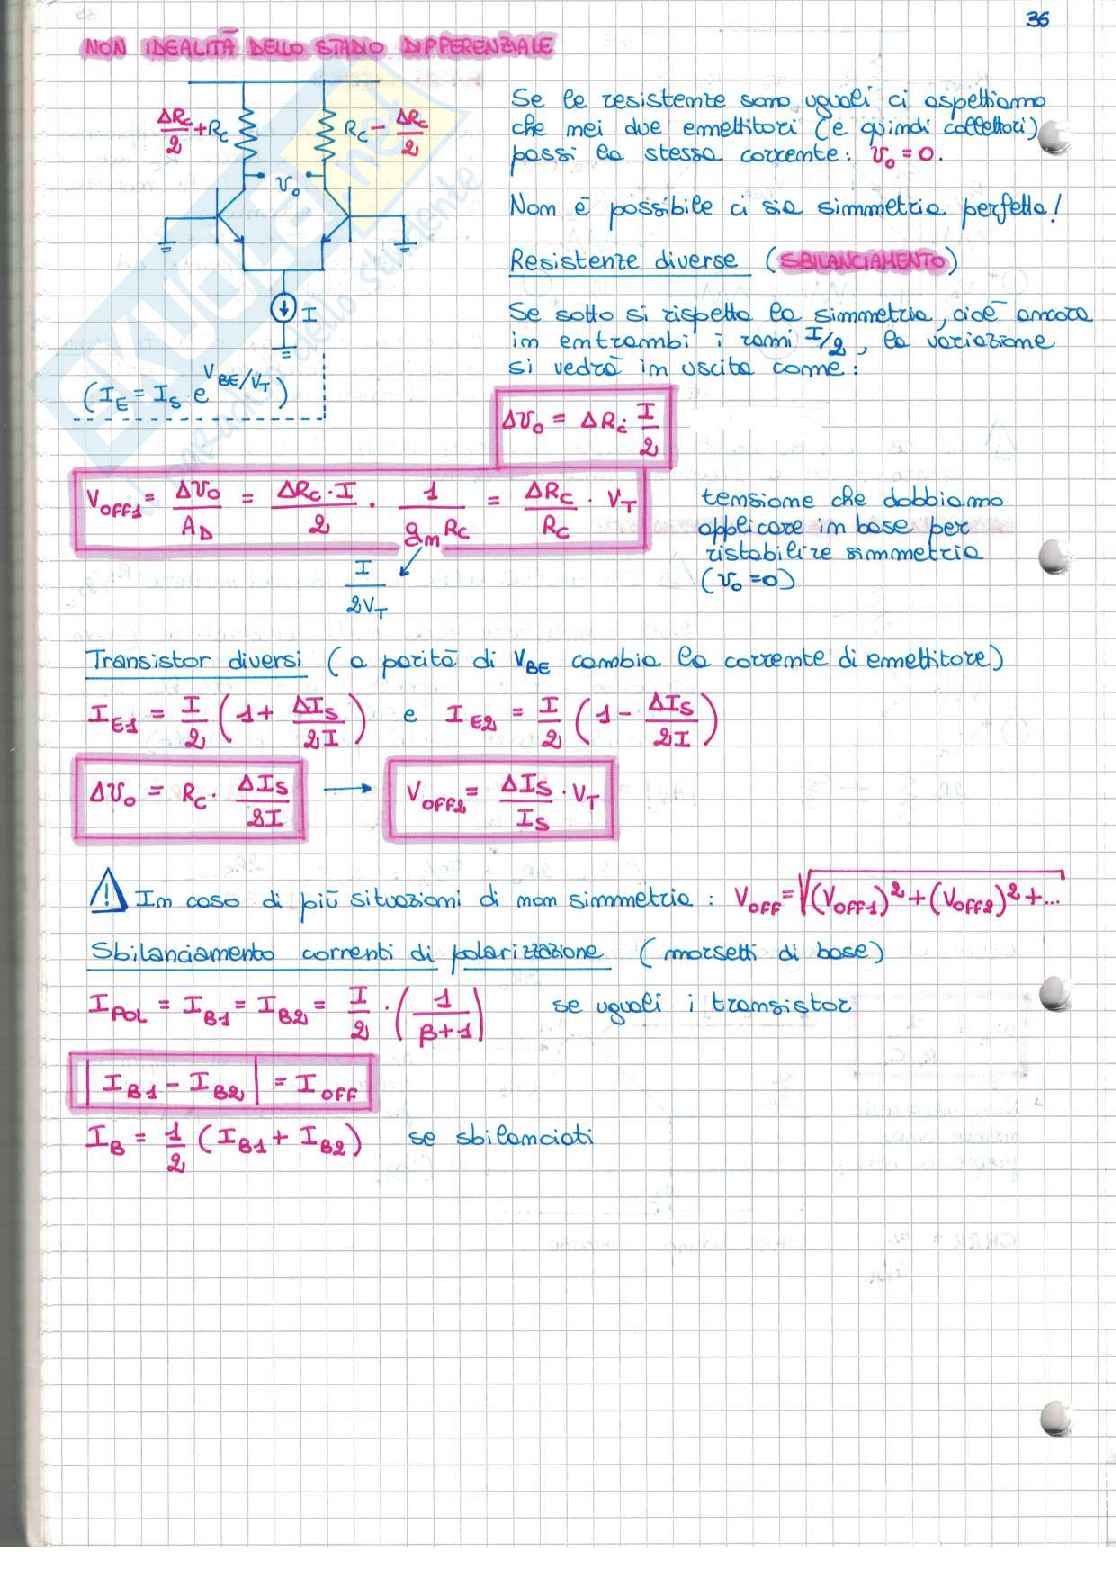 36
NON IDEALITÀ DELLO STADIO DIFFERENZIALE
ΔRc/2 + Rc
Rc - ΔRc/2
v₀
I
(I_E = I_S e^(V_BE/V_T))
Se le resistenze sono uguali ci aspettiamo
che nei due emettitori (e quindi collettori)
passi la stessa corrente: v₀ = 0.
Non è possibile ci sia simmetria perfetta!
Resistenze diverse (SBILANCIAMENTO)
Se sotto si rispetta la simmetria, cioè ancora
in entrambi i rami I/2, la variazione
si vedrà in uscita come:
Δv₀ = ΔRc I/2
V_OFF1 = Δv₀/A_D = ΔRc · I/2 · 1/(g_m Rc) = ΔRc/Rc · V_T
I/2V_T
tensione che dobbiamo
applicare in base per
ristabilire simmetria
(v₀ = 0)
Transistor diversi (a parità di V_BE cambia la corrente di emettitore)
I_E1 = I/2 (1 + ΔI_S/2I) e I_E2 = I/2 (1 - ΔI_S/2I)
Δv₀ = Rc · ΔI_S/2I → V_OFF2 = ΔI_S/I_S · V_T
⚠ In caso di più situazioni di non simmetria: V_OFF = √((V_OFF1)² + (V_OFF2)² + ...
Sbilanciamento correnti di polarizzazione (morsetti di base)
I_POL = I_B1 = I_B2 = I/2 · (1/(β+1)) se uguali i transistor
|I_B1 - I_B2| = I_OFF
I_B = 1/2 (I_B1 + I_B2) se sbilanciati